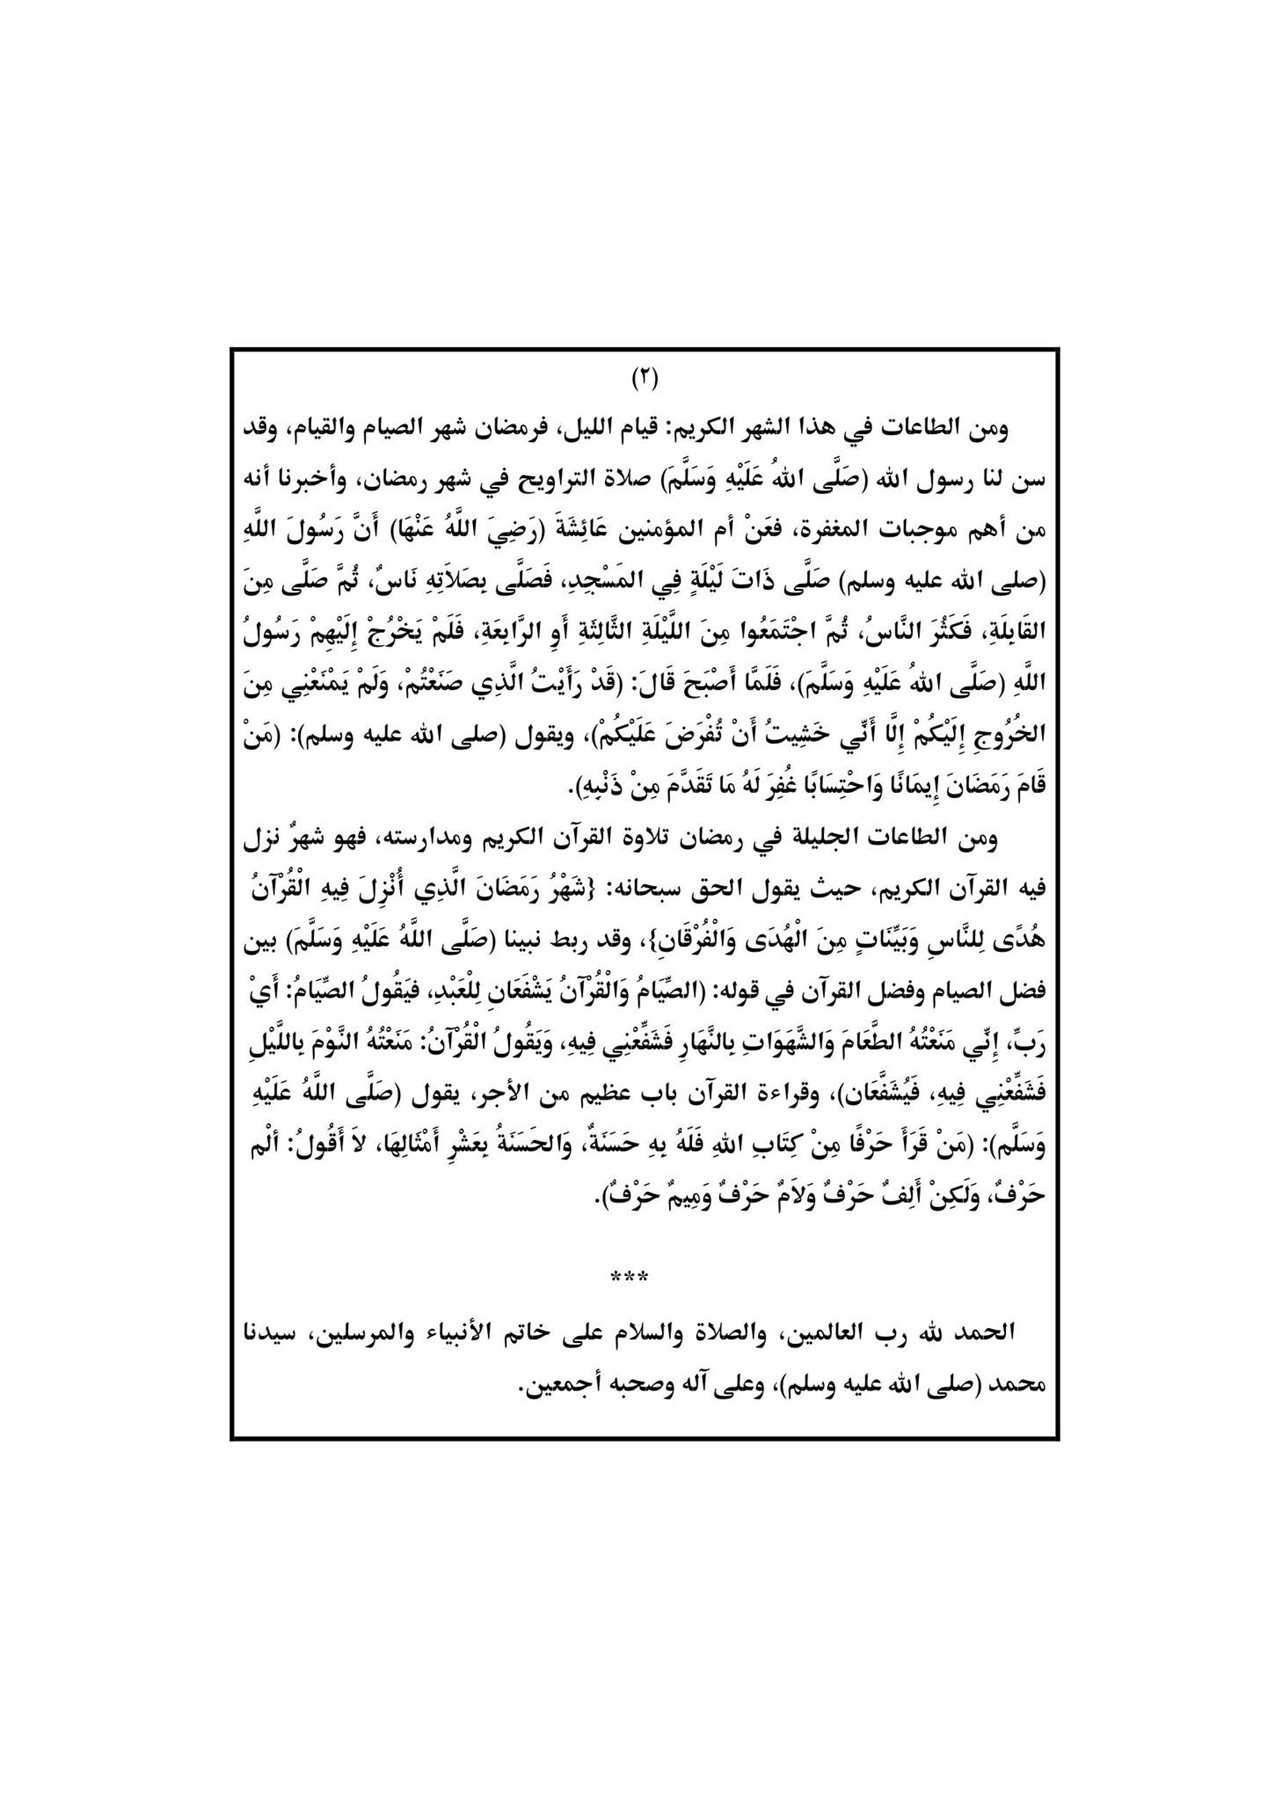 (٢)
ومن الطاعات في هذا الشهر الكريم: قيام الليل، فرمضان شهر الصيام والقيام، وقد
سن لنا رسول الله (صَلَّى اللهُ عَلَيْهِ وَسَلَّمَ) صلاة التراويح في شهر رمضان، وأخبرنا أنه
من أهم موجبات المغفرة، فعَنْ أم المؤمنين عَائِشَةَ (رَضِيَ اللَّهُ عَنْهَا) أَنَّ رَسُولَ اللَّهِ
(صلى الله عليه وسلم) صَلَّى ذَاتَ لَيْلَةٍ فِي المَسْجِدِ، فَصَلَّى بِصَلاَتِهِ نَاسٌ، ثُمَّ صَلَّى مِنَ
القَابِلَةِ، فَكَثُرَ النَّاسُ، ثُمَّ اجْتَمَعُوا مِنَ اللَّيْلَةِ الثَّالِثَةِ أَوِ الرَّابِعَةِ، فَلَمْ يَخْرُجْ إِلَيْهِمْ رَسُولُ
اللَّهِ (صَلَّى اللهُ عَلَيْهِ وَسَلَّمَ)، فَلَمَّا أَصْبَحَ قَالَ: (قَدْ رَأَيْتُ الَّذِي صَنَعْتُمْ، وَلَمْ يَمْنَعْنِي مِنَ
الخُرُوجِ إِلَيْكُمْ إِلَّا أَنِّي خَشِيتُ أَنْ تُفْرَضَ عَلَيْكُمْ)، ويقول (صلى الله عليه وسلم): (مَنْ
قَامَ رَمَضَانَ إِيمَانًا وَاحْتِسَابًا غُفِرَ لَهُ مَا تَقَدَّمَ مِنْ ذَنْبِهِ).
ومن الطاعات الجليلة في رمضان تلاوة القرآن الكريم ومدارسته، فهو شهرٌ نزل
فيه القرآن الكريم، حيث يقول الحق سبحانه: {شَهْرُ رَمَضَانَ الَّذِي أُنْزِلَ فِيهِ الْقُرْآنُ
هُدًى لِلنَّاسِ وَبَيِّنَاتٍ مِنَ الْهُدَى وَالْفُرْقَانِ}، وقد ربط نبينا (صَلَّى اللَّهُ عَلَيْهِ وَسَلَّمَ) بين
فضل الصيام وفضل القرآن في قوله: (الصِّيَامُ وَالْقُرْآنُ يَشْفَعَانِ لِلْعَبْدِ، فيَقُولُ الصِّيَامُ: أَيْ
رَبِّ، إِنِّي مَنَعْتُهُ الطَّعَامَ وَالشَّهَوَاتِ بِالنَّهَارِ فَشَفِّعْنِي فِيهِ، وَيَقُولُ الْقُرْآنُ: مَنَعْتُهُ النَّوْمَ بِاللَّيْلِ
فَشَفِّعْنِي فِيهِ، فَيُشَفَّعَان)، وقراءة القرآن باب عظيم من الأجر، يقول (صَلَّى اللَّهُ عَلَيْهِ
وَسَلَّم): (مَنْ قَرَأَ حَرْفًا مِنْ كِتَابِ اللهِ فَلَهُ بِهِ حَسَنَةٌ، وَالحَسَنَةُ بِعَشْرِ أَمْثَالِهَا، لاَ أَقُولُ: ألْم
حَرْفٌ، وَلَكِنْ أَلِفٌ حَرْفٌ وَلاَمٌ حَرْفٌ وَمِيمٌ حَرْفٌ).
***
الحمد لله رب العالمين، والصلاة والسلام على خاتم الأنبياء والمرسلين، سيدنا
محمد (صلى الله عليه وسلم)، وعلى آله وصحبه أجمعين.